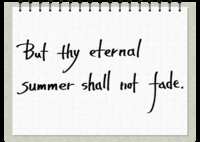 But thy eternal
summer shall not fade.